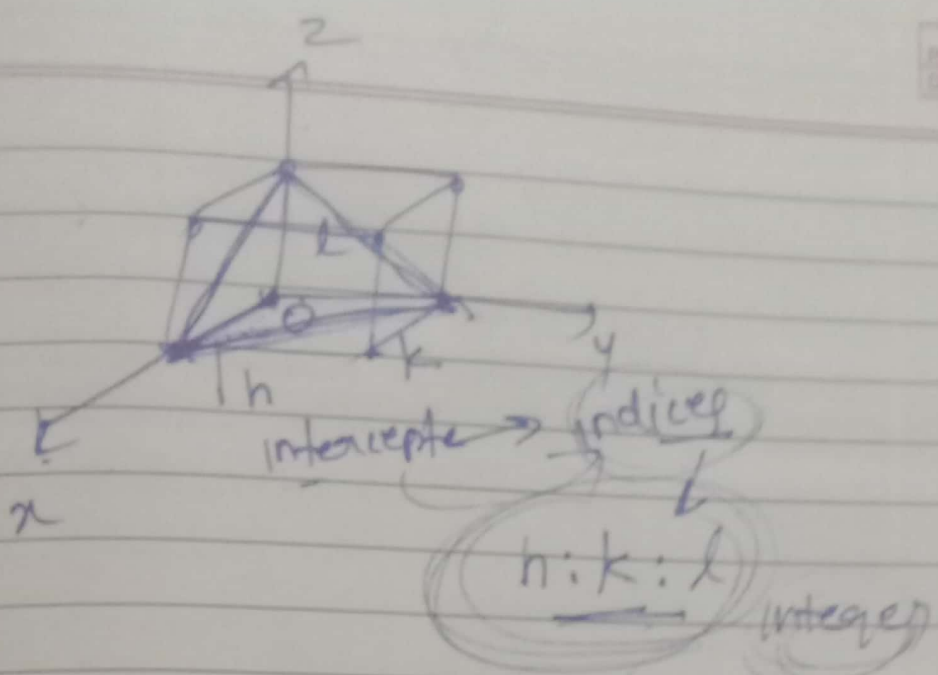 z
l
O
y
k
h
intercepte → indices
x
h : k : l
integer